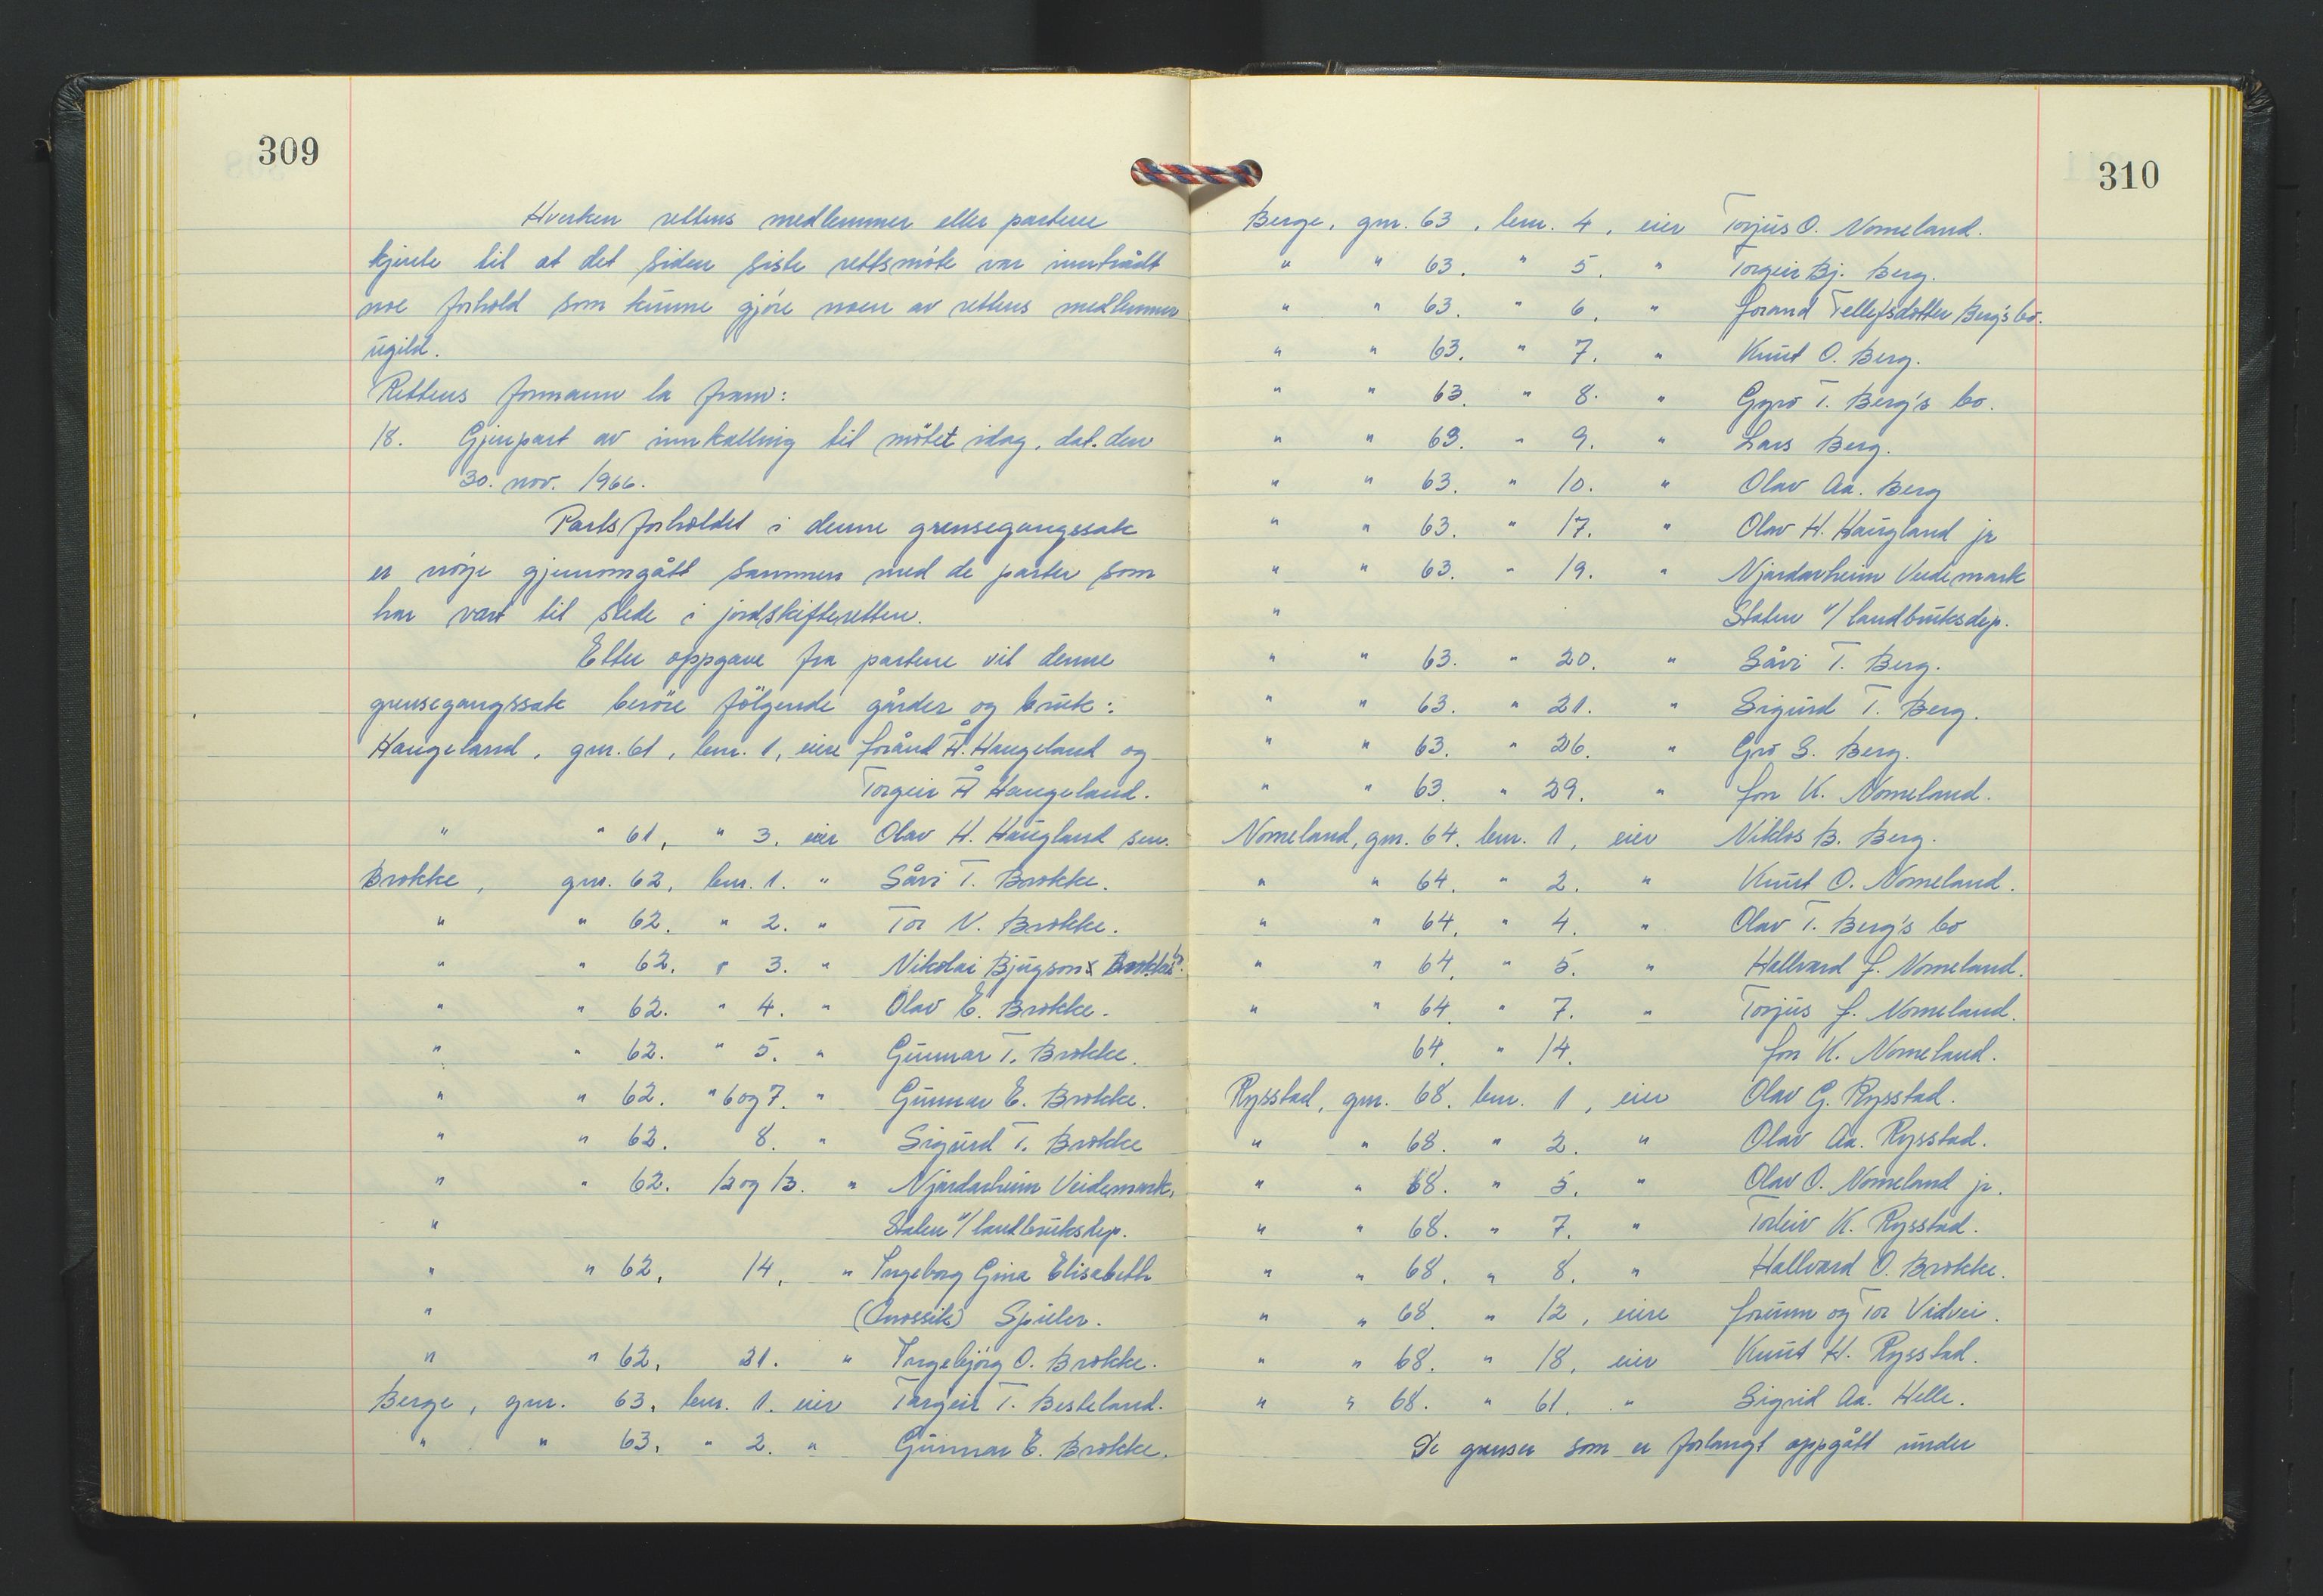 309
Hverken rettens medlemmer eller partene
kjente til at det siden siste rettsmöte var inntrådt
noe forhold som kunne gjöre noen av rettens medlemmer
ugild.
Rettens formann la fram:
18. Gjenpart av innkalling til mötet idag, dat. den
30. nov. 1966.
Partsforholdet i denne grensegangssak
er nöye gjennomgått sammen med de parter som
har vært til stede i jordskifteretten.
Etter oppgave fra partene vil denne
grensegangssak beröre fölgende gårder og bruk:
Haugeland, gnr. 61, bnr. 1, eiere Jorånd Å. Haugeland og
Torgeir Å Haugeland.
" " 61, " 3. eier Olav H. Haugland sen.
Brokke, gnr. 62, bnr. 1. " Såvi T. Brokke.
" " 62. " 2. " Tor N. Brokke.
" " 62. " 3. " Nikolai Bjugson
" " 62. " 4. " Olav E. Brokke.
" " 62. " 5. " Gunnar T. Brokke.
" " 62. " 6 og 7. " Gunnar E. Brokke.
" " 62. 8. " Sigurd T. Brokke
" " 62. 12 og 13. " Njardarheim Veidemark,
" Staten v/ landbruksdep.
" " 62, 14, " Ingeborg Gina Elisabeth
" (Onossik) Spieler.
" " 62, 21. " Ingebjörg O. Brokke.
Berge, gnr. 63, bnr. 1. eier Targeir T. Besteland.
" " 63, " 2. " Gunnar E. Brokke.
310
Berge, gnr. 63, bnr. 4, eier Torjus O. Nomeland.
" " 63. " 5. " Torgeir Bj. Berg.
" " 63. " 6, " Jorand Tellefsdotter Berg's bo.
" " 63. " 7. " Knut O. Berg.
" " 63. " 8. " Gyro T. Berg's bo.
" " 63. " 9. " Lars Berg.
" " 63. " 10. " Olav Aa. Berg
" " 63. " 17. " Olav H. Haugland jr
" " 63. " 19. " Njardarheim Veidemark
" Staten v/ landbruksdep.
" " 63. " 20. " Såvi T. Berg.
" " 63. " 21. " Sigurd T. Berg.
" " 63. " 26. " Gro S. Berg.
" " 63. " 29. " Jon K. Nomeland.
Nomeland, gnr. 64. bnr. 1, eier Niklos B. Berg.
" " 64. " 2. " Knut O. Nomeland.
" " 64. " 4. " Olav T. Berg's bo
" " 64. " 5. " Hallvard J. Nomeland.
" " 64. " 7. " Torjus J. Nomeland.
64. " 14. Jon K. Nomeland.
Rysstad, gnr. 68. bnr. 1, eier Olav G. Rysstad.
" " 68. " 2. " Olav Aa. Rysstad.
" " 68. " 5. " Olav O. Nomeland jr.
" " 68. " 7. " Torleiv K. Rysstad.
" " 68. " 8. " Hallvard O. Brokke.
" " 68. " 12, eiere Jorunn og Tor Vidvei.
" " 68. " 18, eier Knut H. Rysstad.
" " 68. " 61. " Sigrid Aa. Helle.
De grenser som er forlangt oppgått under